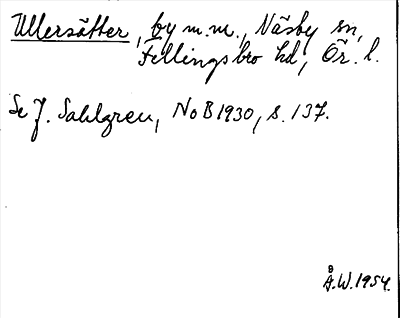 Ullersätter, by m.m., Näsby sn,
Fellingsbro hd, Ör. l.
Se J. Sahlgren, NoB 1930, s. 137.
Å.W. 1954.